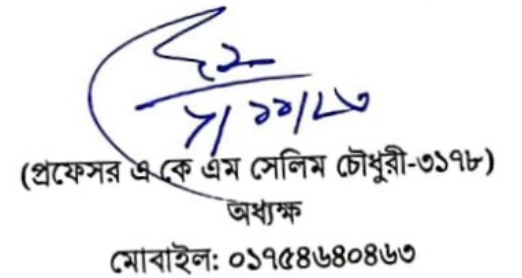 ৮/১১/২৩
(প্রফেসর এ কে এম সেলিম চৌধুরী-৩১৭৮)
অধ্যক্ষ
মোবাইল: ০১৭৫৪৬৪০৪৬৩